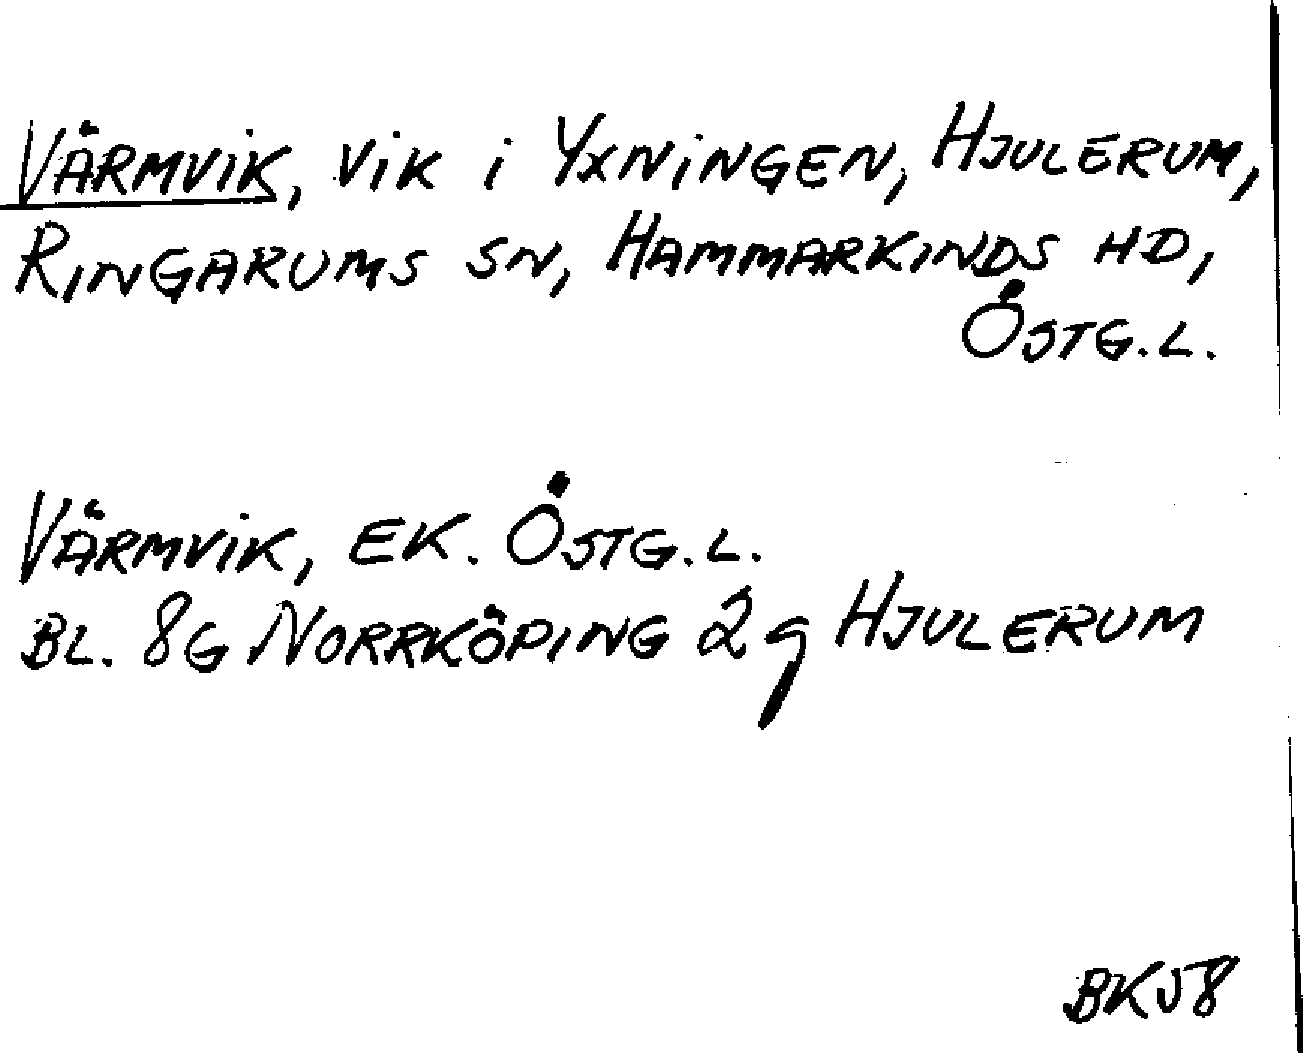 Värmvik, vik i Yxningen, Hjulerum,
Ringarums sn, Hammarkinds hd,
Östg.l.
Värmvik, ek. Östg.l.
Bl. 8G Norrköping 2g Hjulerum
BK58